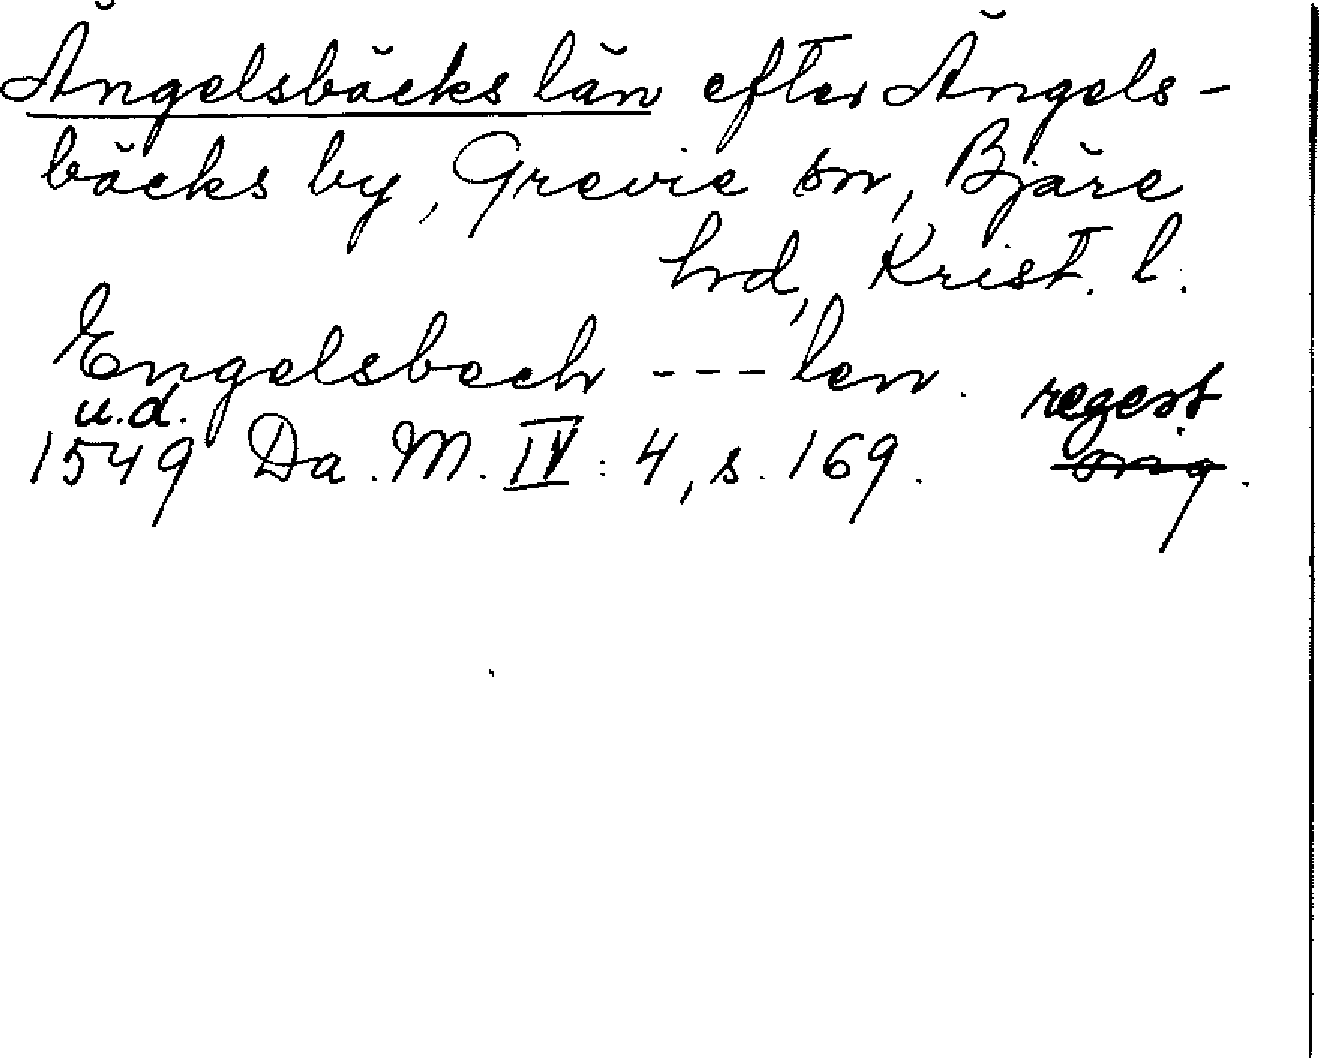 Ängelsbäcks län efter Ängels-
bäcks by, Grevie sn, Bjäre
hrd, Krist. l.
Engelsbech --- len.
u.d. regest
1549 Da. M. IV: 4, s. 169. orig.